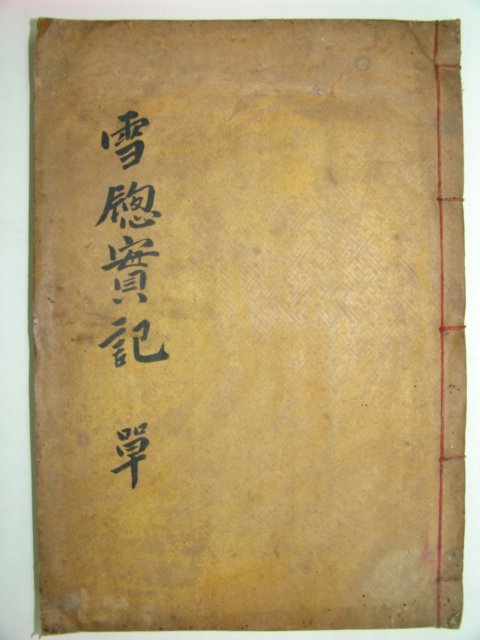 雪牕實記 單